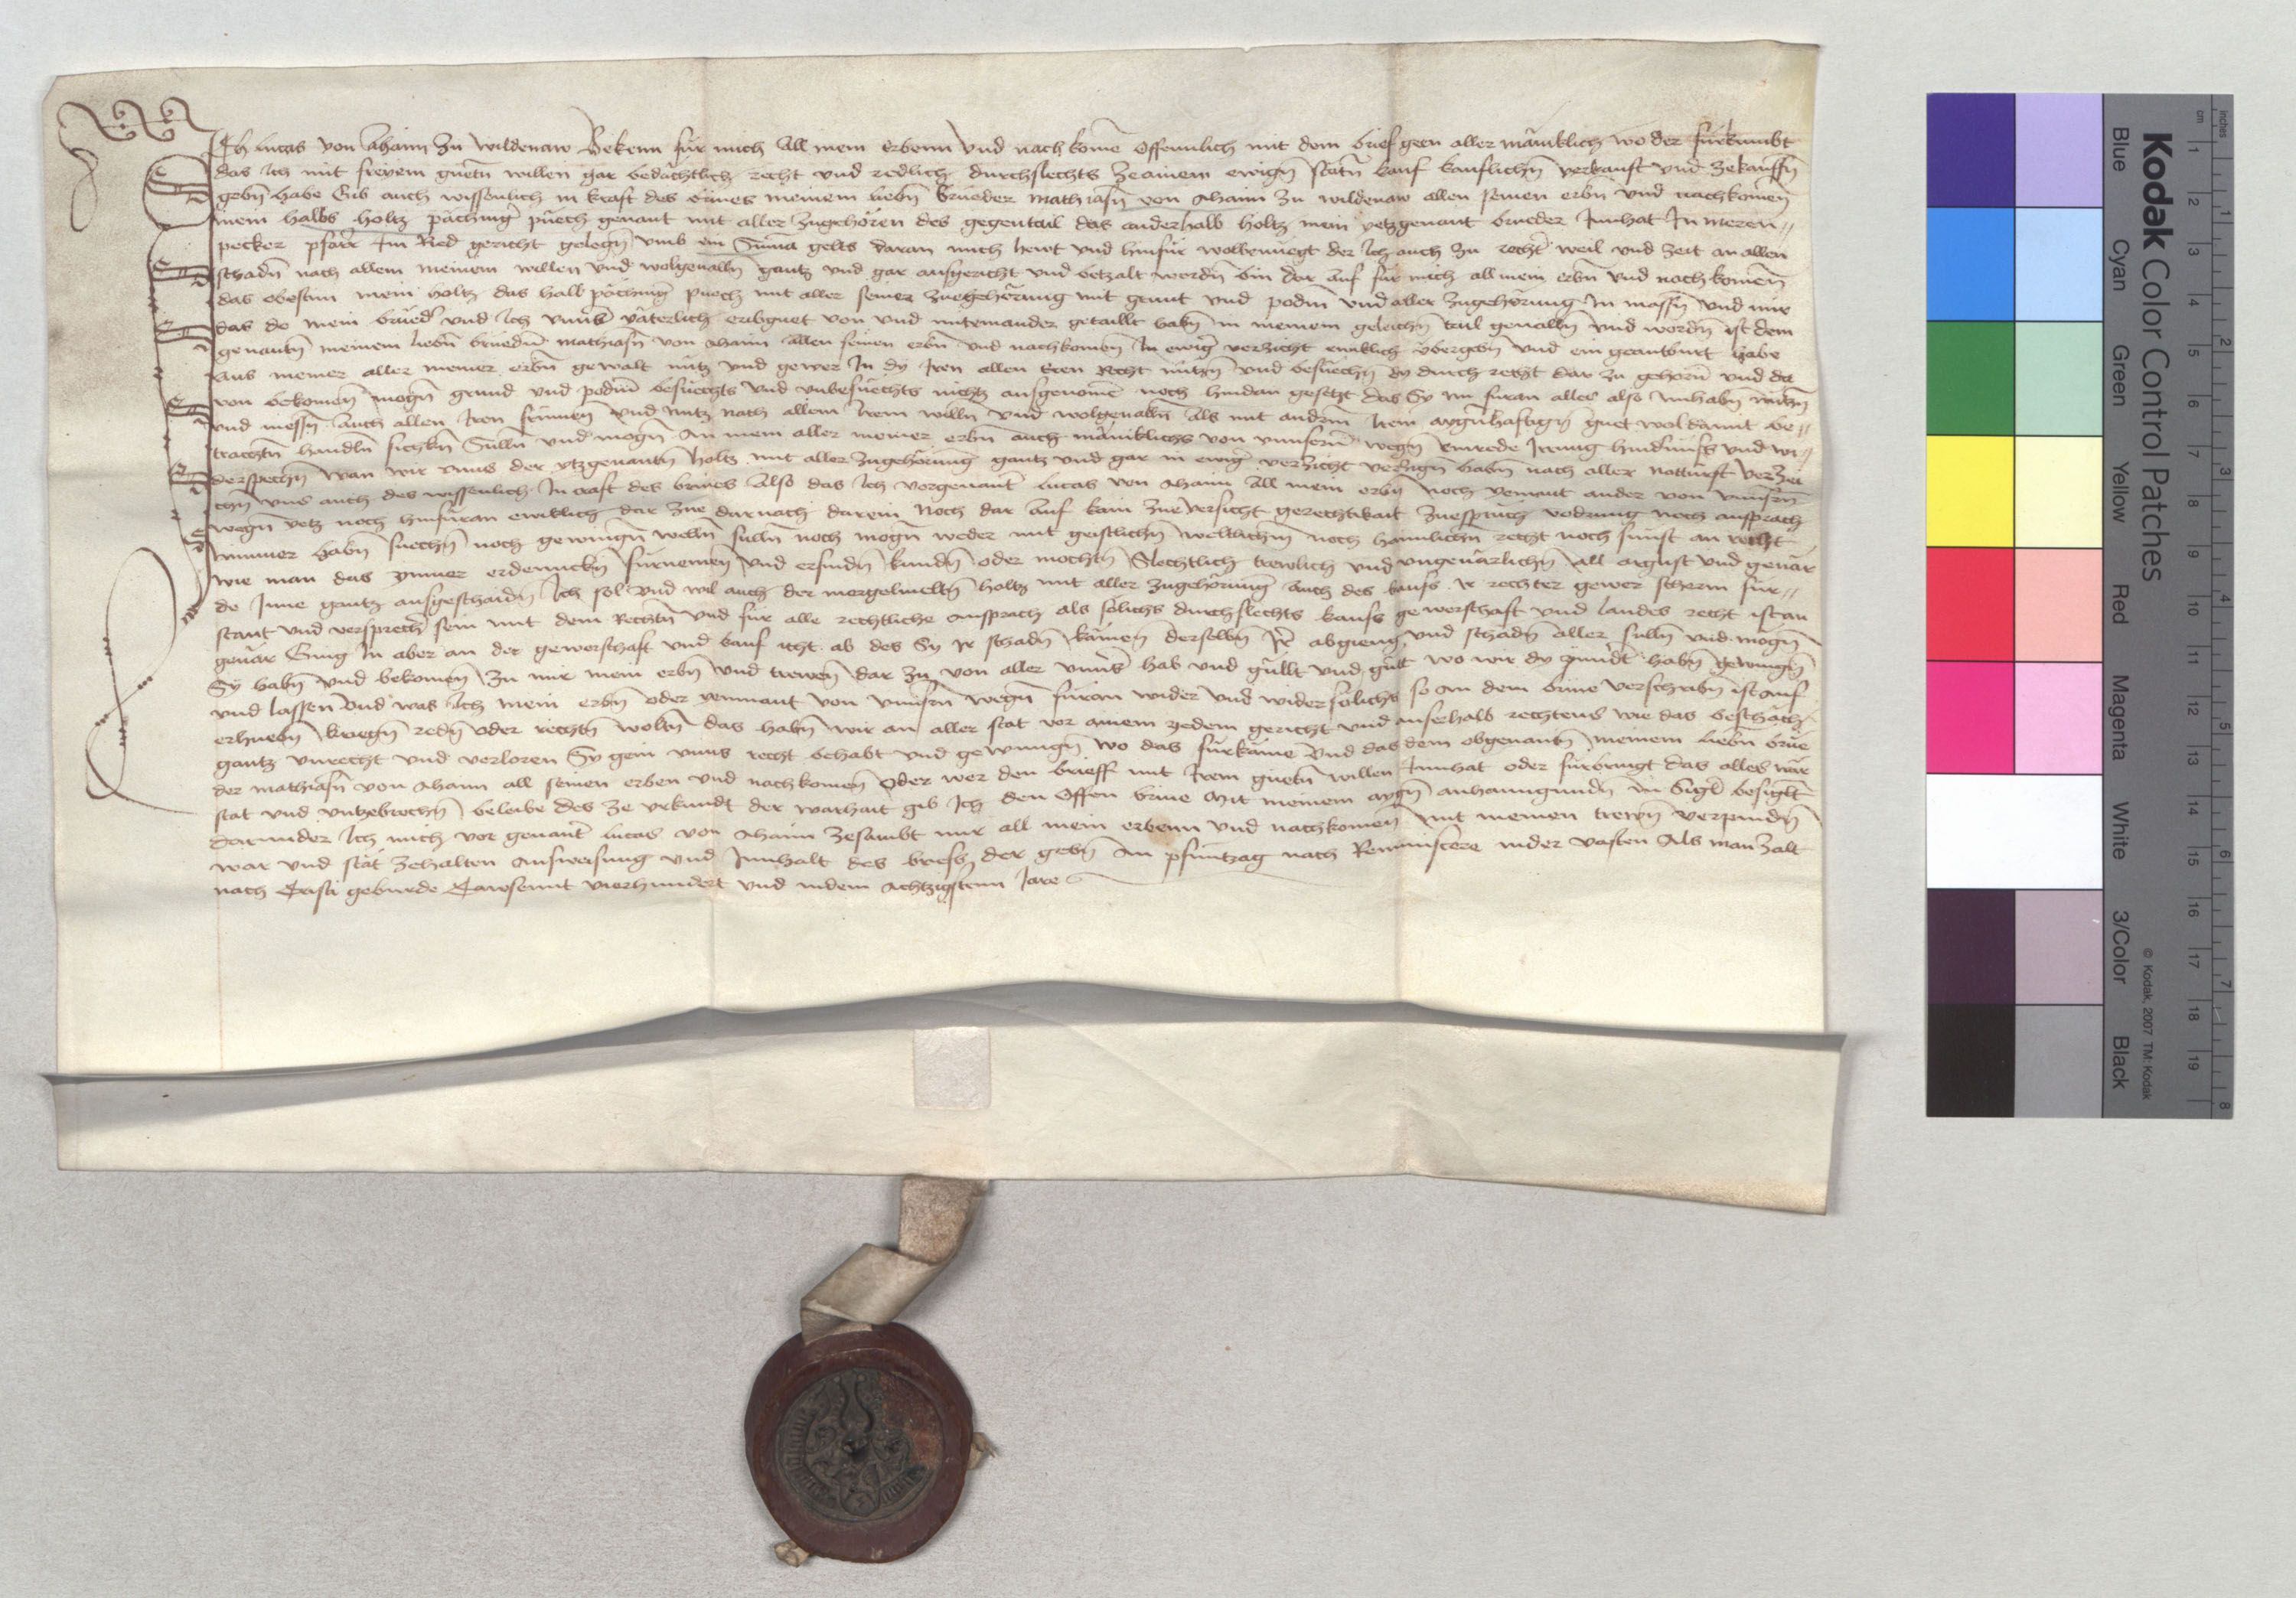 Ich lucas von Ahaim zu wildenaw Bekenn fur mich All mein Erbenn vnd nach kome Offennlich mit dem brief geen aller mäniklich wo der furkumbt
das ich mit freyem guetn willen gar bedächtlich recht vnd redlich durchslechts zeainem ewign statn kauf kauflichn verkauft vnd zekauffn
gebn habe Gib auch wissenlich in kraft des briues meinem liebn brueder Mathiasn von Ahaim zu wildenaw allen seinen erbn vnd nachkomen
mein halbs holtz päching puech genant mit aller zugehören des gegentail das anderhalb holtz main yetzgenant brueder Innhat In meren
pecker pfarr Im Ried gericht gelegn vmb ein Suma gelts daran mich hewt vnd hinfur wolbenuegt der Ich auch zu rechter weil vnd zeit an allen
schadn nach allem meinem willen vnd wolgenalln gantz vnd gar ausgericht vnd betzalt wordn bin dar auf fur mich all mein erbn vnd nachkomen
das obestim mein holtz das halb päching puech mit aller seiner zuegehörung mit grunt vnd podm vnd aller zugehörung In massn vnd mir
das do mein brueder vnd Ich vnnser väterlich eribguet von vnd miteinander getaillt habn in meinem geleichn tail geualln vnd wordn ist dem
genantn meinem liebn bruedern Mathiasn von Ahaim allen seinen erbn vnd nachkomen In ewig verzicht ewiklich vbergebn vnd ein geantburt habe
aus meiner aller meiner erbn gewalt nutz vnd gewer In dy Iren allen Iren recht nutzn vnd besuechn dy durch recht dar zu gehorn vnd da
von bekomen mogn grund vnd podm besuechts vnd vnbesuechts nichtz ausgenome noch hindan gesetzt das Sy nu furan alles also Innhabn nutzn
vnd niessn auch allen Iren frumen vnd nutz nach allem Irem willn vnd wolgenalln Als mit anderm Irem aygnhaftign guet wol damit be
trachtn handln schickn Sulln vnd mogn An mein aller meiner erbn auch mäniklichs von vnnsern wegn Einrede Irrung hindrnuss vnd wi
dersprechn wan wir vnns der ytzgenantn holtz mit aller zugehörung gantz vnd gar in ewig verzicht verzign habn nach aller notturft verzei
chn vns auch des wissenlich In craft des briues Also das Ich vorgenant lucas von Ahaim All mein erbn noch yemant ander von vnnsern
wegn yetz noch hinfuran ewiklich dar zue darnach darein noch dar auf kain zue versicht gerechtikait zuespruch vodrung noch ansprach
nimmer habn suechn noch gewingn welln sulln noch mogn weder mit geistlichn weltlichn noch haimlichn recht noch sunst an recht
wie man das ymmer erdenckn furnemen vnd erfindn kundn oder mochtn Slechtlich trewlich vnd vngeuärlichn All argnst vnd geuär
de Inne gantz ausgeschaidn Ich sol vnd wil auch der mergemeltn holtz mit aller zugehörung auch des kaufs Ir rechter gewer scherm fur
stant vnd versprecher sein mit dem Rechtn vnd fur alle rechtliche ansprach als sölichs durchslechts kaufs gewerschaft vnd landes recht ist an
geuär Gieng In aber an der gewerschaft vnd kauf icht ab des Sy Ir schadn kämen derselbn Ir abgieng vnd schadn aller sulln vnd mogn
Sy habn vnd bekomen zu mir mein erbn vnd trewen dar zu von aller vnnser hab vnd güllt vnd guett wo wir dy yndert habn gewingn
vnd lassen vnd was Ich mein erbn oder yemmant von vnnsern wegn furan wider vnd wider sölichs so an dem briue verschribn ist auf
erhuebn kriegn redn oder rechtn woltn das habn wir an aller stat vor ainem yedem gericht vnd ausserhalb rechtens wie das beschäch
gantz vnrecht vnd verloren Sy gein vnns recht behabt vnd gewungn wo das furkäme vnd das dem obgenantn meinem liebn brue
der Mathiasn von Ahaim all seinen erben vnd nachkomen Oder wer den brieff mit Irem guetn willen Innhat oder furbringt das alles war
stat vnd vntzebrochn beleibe des ze vrkundt der warhait gib Ich den Offen briue Mit meinem aygn anhanngundn In Sigl besiglt
darunder Ich mich vor genant lucas von Ahaim zesambt mir all mein erbenn vnd nachkomen mit meinen trewn verpindn
war vnd stät zehalten Ausweisung vnd Innhalt des briefs der gebn An pfintztag nach Reminiscere inder vasten Als man zalt
nach Cristi geburde Tawsennt vierhundert vnd indem achtzigstenn Jare
Kodak Color Control Patches
© Kodak, 2007 TM: Kodak
Blue Cyan Green Yellow Red Magenta White 3/Color Black
cm 1 2 3 4 5 6 7 8 9 10 11 12 13 14 15 16 17 18 19
inches 1 2 3 4 5 6 7 8